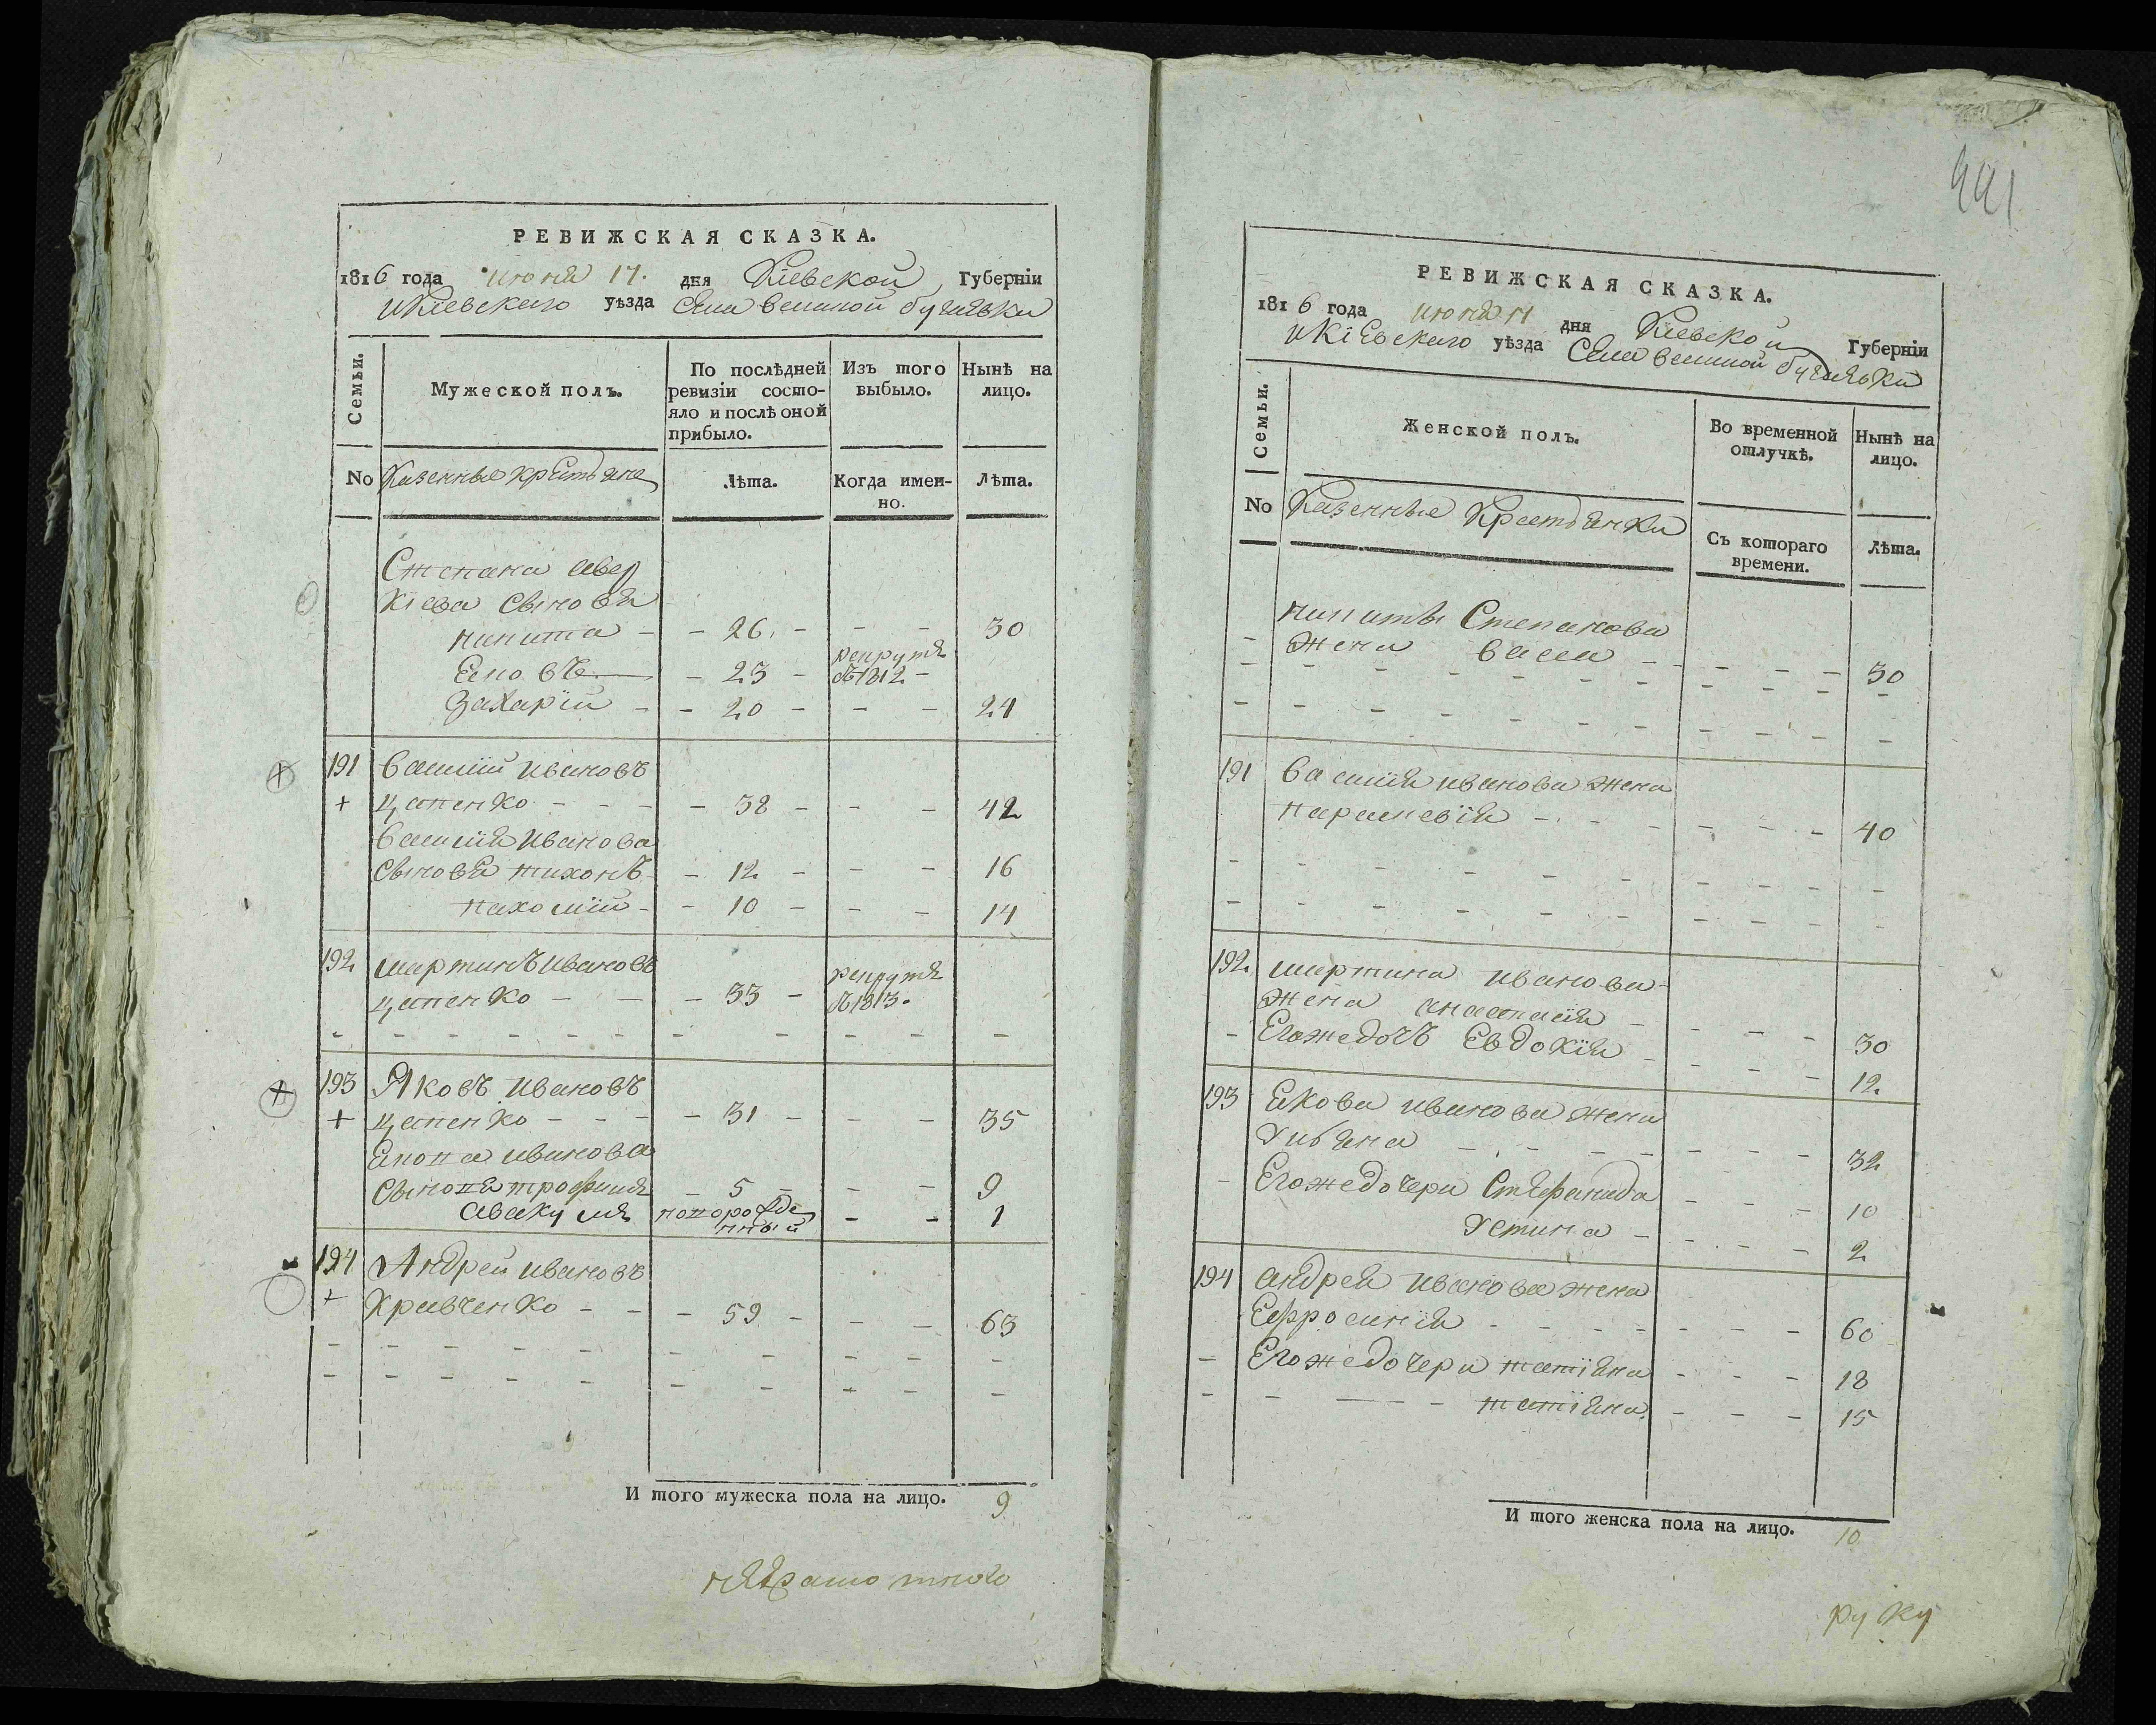 РЕВИЖСКАЯ СКАЗКА.
1816 года июня 17. дня Кіевской Губерніи
и Кіевского уѣзда Села великой бугаевки
Семьи.
Мужеской полъ.
По послѣдней ревизіи состояло и послѣ оной прибыло.
Изъ того выбыло.
Нынѣ на лицо.
No Казенные крестьяне
Лѣта.
Когда именно.
Лѣта.
Степана авер
кіева сыновя
никита - - 26. - - - 30
- 23 - рекрутъ въ 1812 -
Захарїй - - 20 - - - 24
191 василій ивановъ
+ цапенко - - - - 38 - - - 42
василія иванова
сыновя тихонъ - 12 - - - 16
пахомїй - - 10 - - - 14
192 мартинъ ивановъ
цапенко - - - 33 - рекрутъ въ 1813.
- - - - - - - - - - -
193 Яковъ ивановъ
+ цапенко - - - - 31 - - - 35
Якова иванова
сыновя трофимъ - 5 - - - 9
авакумъ новорожденный - - 1
194 Андрей ивановъ
+ кравченко - - - 59 - - - 63
- - - - - - - - - - -
- - - - - - - - - - -
И того мужеска пола на лицо. 9
441
РЕВИЖСКАЯ СКАЗКА.
1816 года июня 17 дня Кіевской Губерніи
и Кіевского уѣзда Села великой бугаевки
Семьи.
Женской полъ.
Во временной отлучкѣ.
Нынѣ на лицо.
No Казенные Крестянки
Съ котораго времени.
Лѣта.
никиты Степанова
- жена васса - - - - - 30
- - - - - - - - - - -
- - - - - - - - - - -
191 василия иванова жена
параскевїя - - - - - - - 40
- - - - - - - - - - -
- - - - - - - - - - -
192 мартина иванова
жена анастасїя - - - - 30
- Егожедочь Евдокїя - - - - 12
193 Якова иванова жена
улїяна - - - - - - - - 32
- Егожедочери Стефанида - - - 10
устина - - - - - 2
194 андрея иванова жена
Ефросинїя - - - - - - - 60
- Егожедочери татїяна - - - 18
- - - - - татїяна - - - 15
И того женска пола на лицо. 10
руку